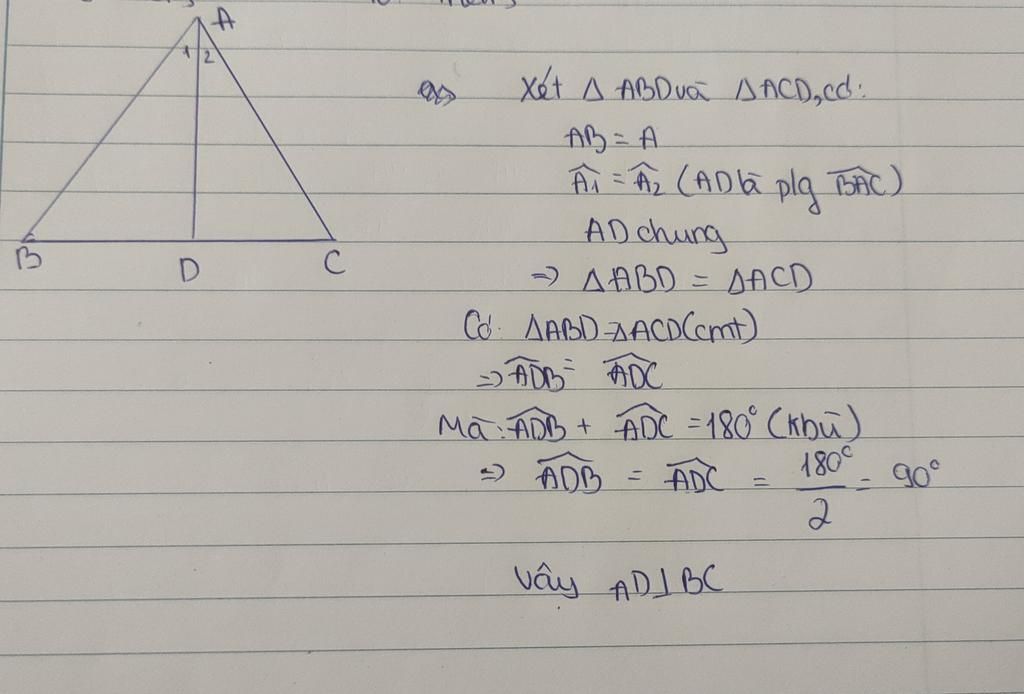 A
1 2
B D C
Xét Δ ABD và Δ ACD, có:
AB = A
Â1 = Â2 (AD là p/g BAC)
AD chung
⇒ ΔABD = ΔACD
Có: ΔABD = ΔACD (cmt)
⇒ ADB = ADC
Mà: ADB + ADC = 180° (kbù)
⇒ ADB = ADC = 180°/2 = 90°
Vây AD⊥BC